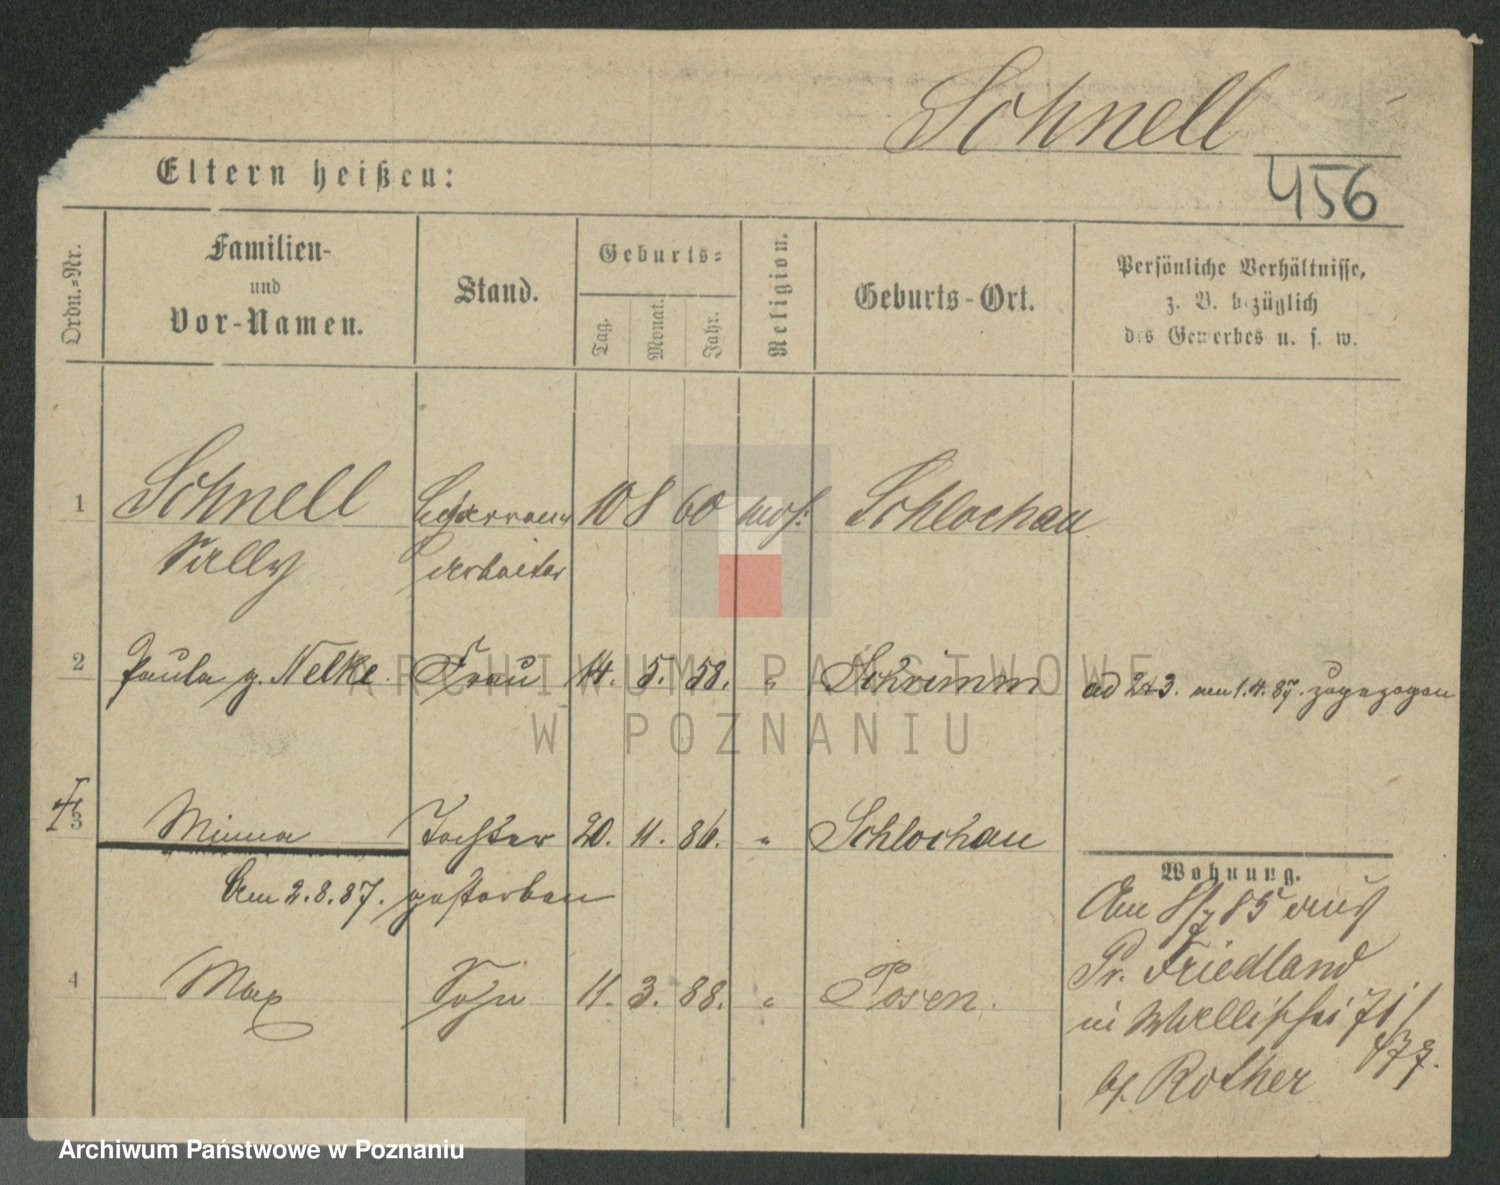 Schnell
456
Eltern heißen:
Ordn.-Nr.
Familien-
und
Vor-Namen.
Stand.
Geburts-
Tag.
Monat.
Jahr.
Religion.
Geburts-Ort.
Persönliche Verhältnisse,
z. B. bezüglich
des Gewerbes u. s. w.
1 Schnell Cigarren 10 8 60 mos. Schlochau
Sally arbeiter
2 Paula g. Nelke. Frau 14. 5. 58. " Schrimm ad 2&3. am 1.4.87. zugezogen
3 Minna Tochter 20. 11. 86. " Schlochau
Am 2.8.87. gestorben
Wohnung.
Am 8/7 85 aus
Pr. Friedland
4 Max Sohn 11. 3. 88. " Posen.
in 71/
477.
bei Rother
ARCHIWUM PAŃSTWOWE
W POZNANIU
Archiwum Państwowe w Poznaniu